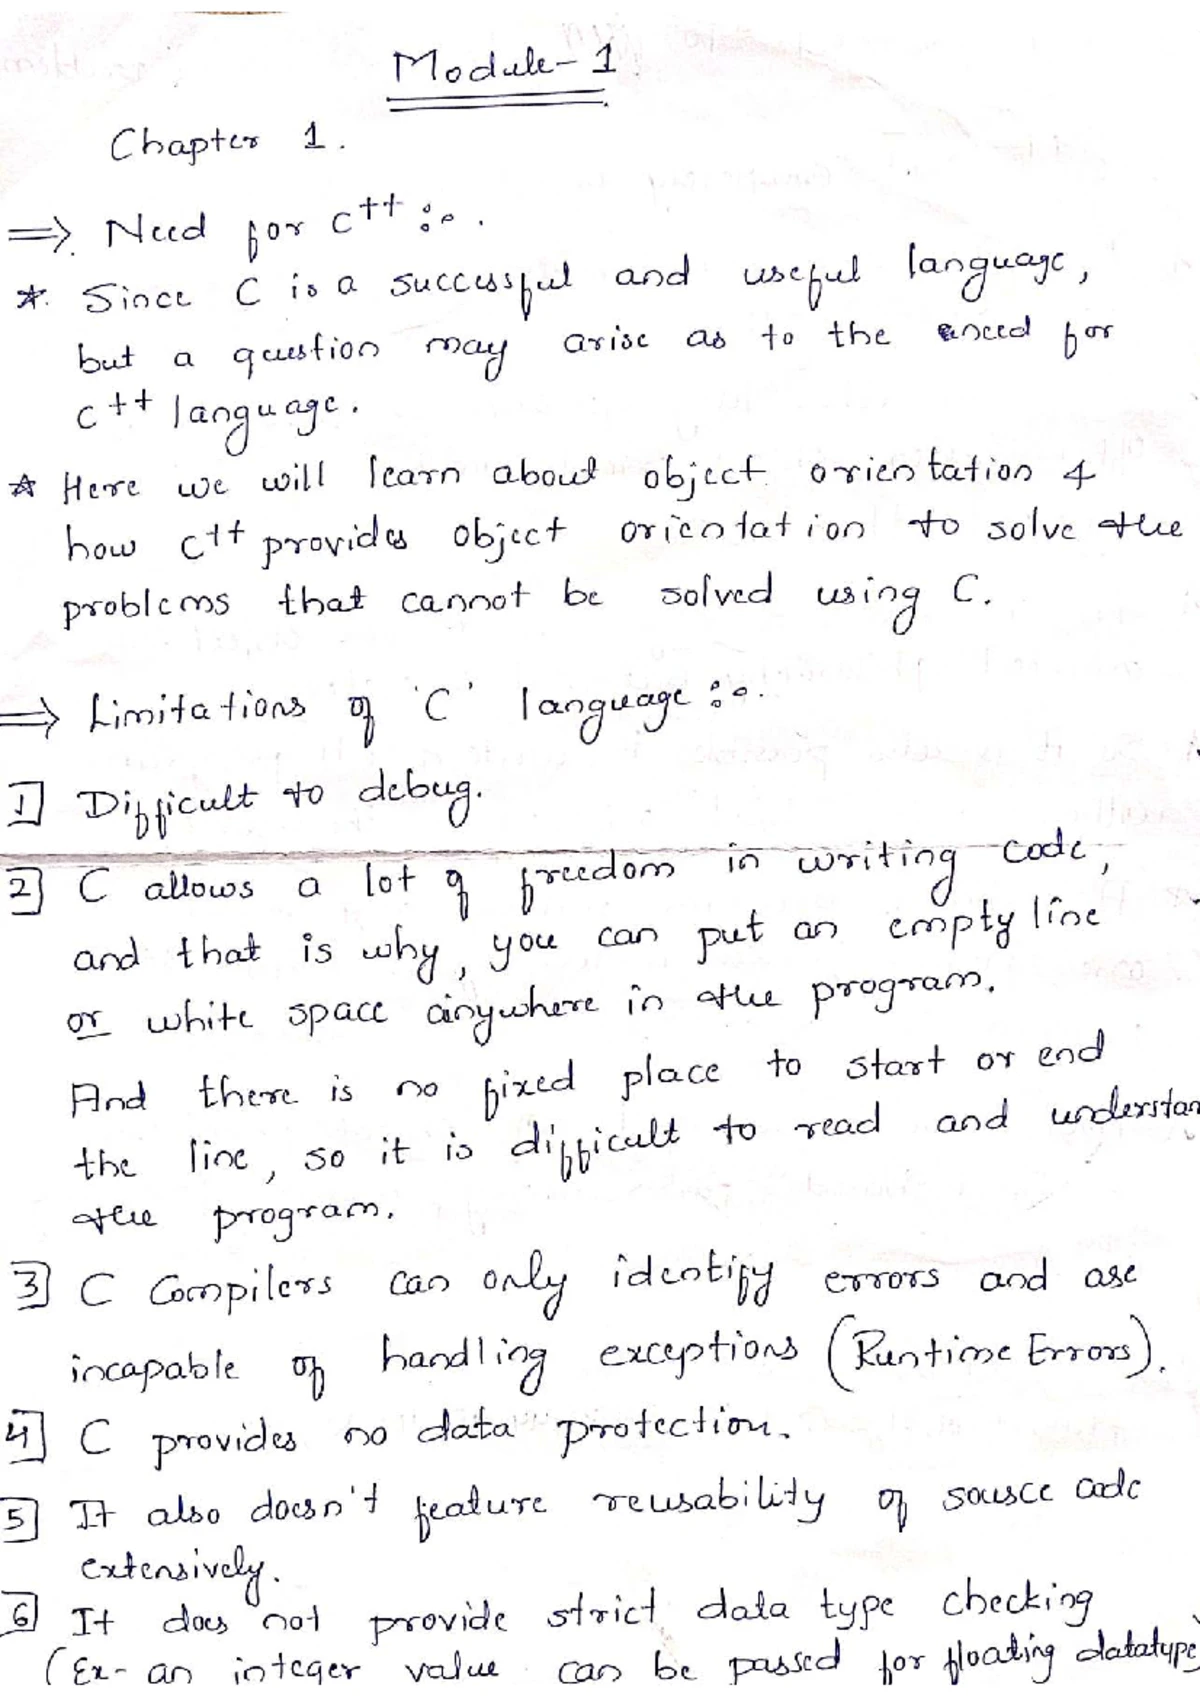 Module-1
Chapter 1.
⇒ Need for C++ :-.
* Since C is a successful and useful language,
but a question may arise as to the need for
C++ language.
* Here we will learn about object orientation &
how C++ provides object orientation to solve the
problems that cannot be solved using C.
⇒ Limitations of 'C' language :-.
1] Difficult to debug.
2] C allows a lot of freedom in writing code,
and that is why, you can put an empty line
or white space anywhere in the program.
And there is no fixed place to start or end
the line, so it is difficult to read and understan
the program.
3] C Compilers can only identify errors and are
incapable of handling exceptions (Runtime Errors).
4] C provides no data protection.
5] It also doesn't feature reusability of source code
extensively.
6] It does not provide strict data type checking
(Ex- an integer value can be passed for floating datatype